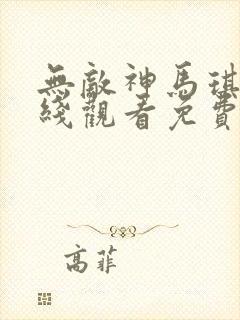 無敵神馬琪
綫觀看免費
高菲